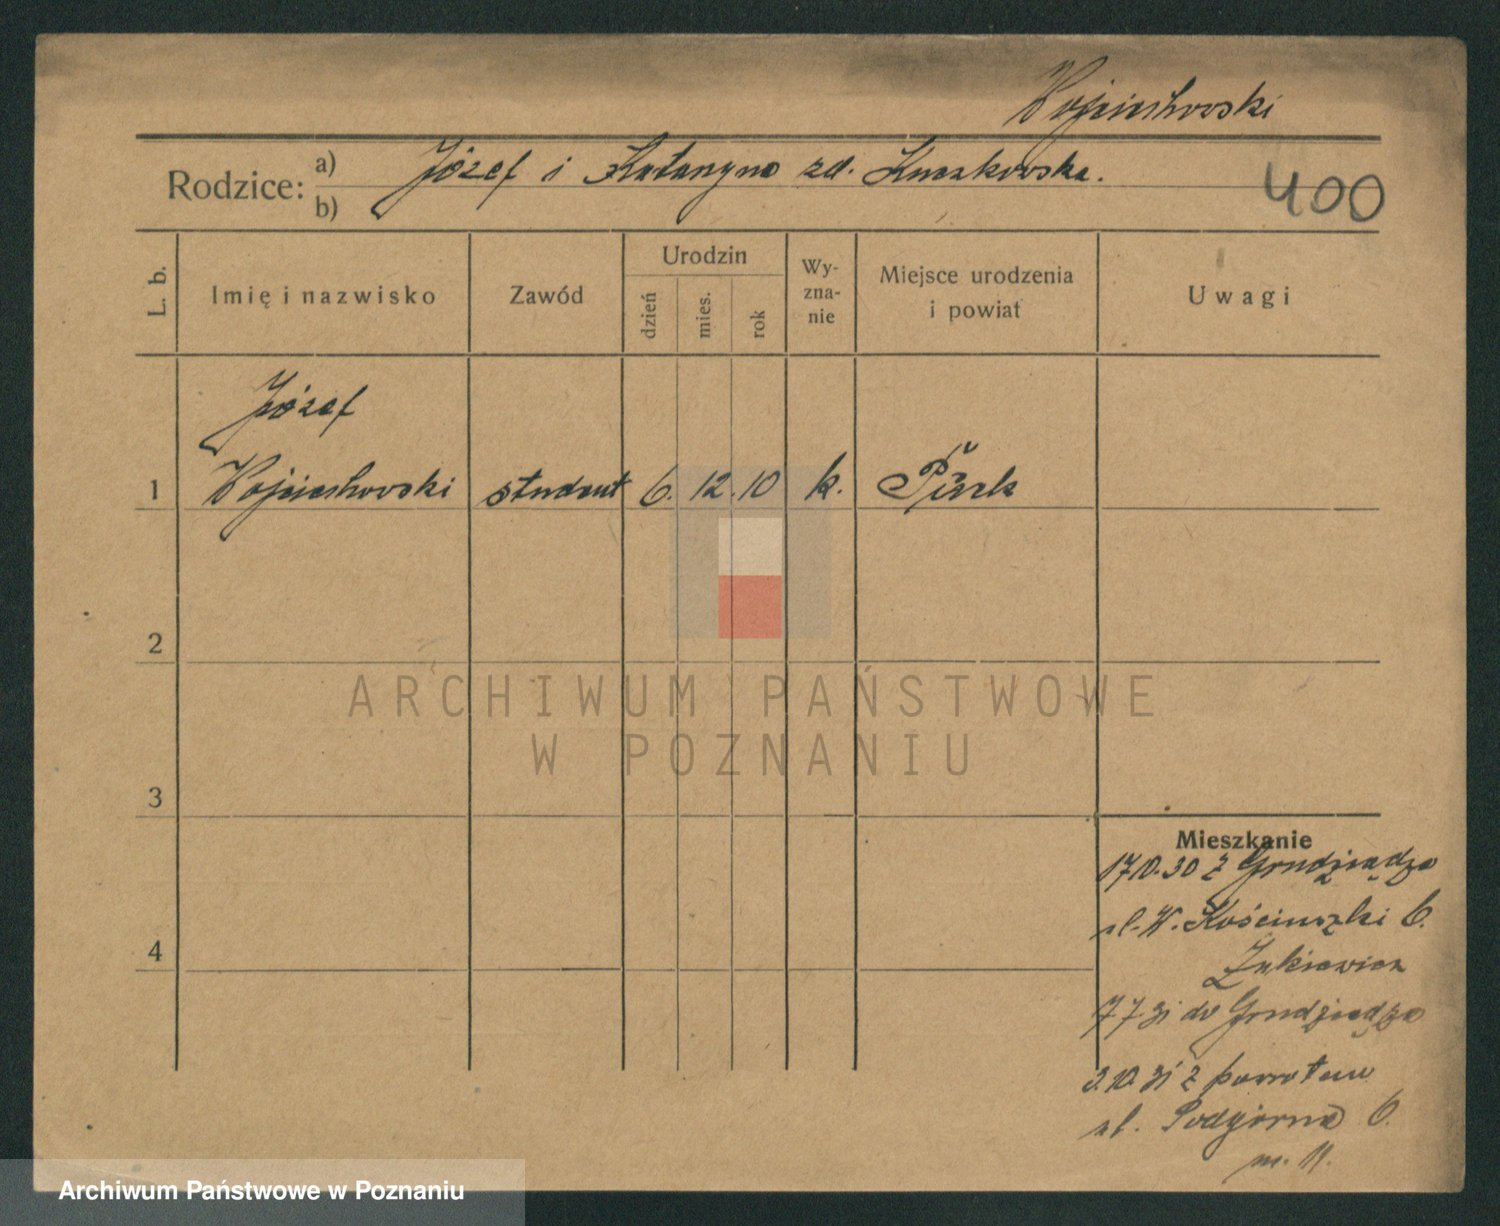 Wojciechowski
Rodzice: a) Józef i Katarzyna zd.
b)
400
L. b.
Imię i nazwisko
Zawód
Urodzin
dzień
mies.
rok
Wy-
zna-
nie
Miejsce urodzenia
i powiat
Uwagi
Józef
1 Wojciechowski student 6. 12. 10 k.
2
3
4
Mieszkanie
17.10.30 z Grudziądza
ul. W. Kościuszki 6.
7.7.31 do Grudziądza
3.10.31 z powrotem
ul. Podgórna 6.
m. 11.
ARCHIWUM PAŃSTWOWE
W POZNANIU
Archiwum Państwowe w Poznaniu